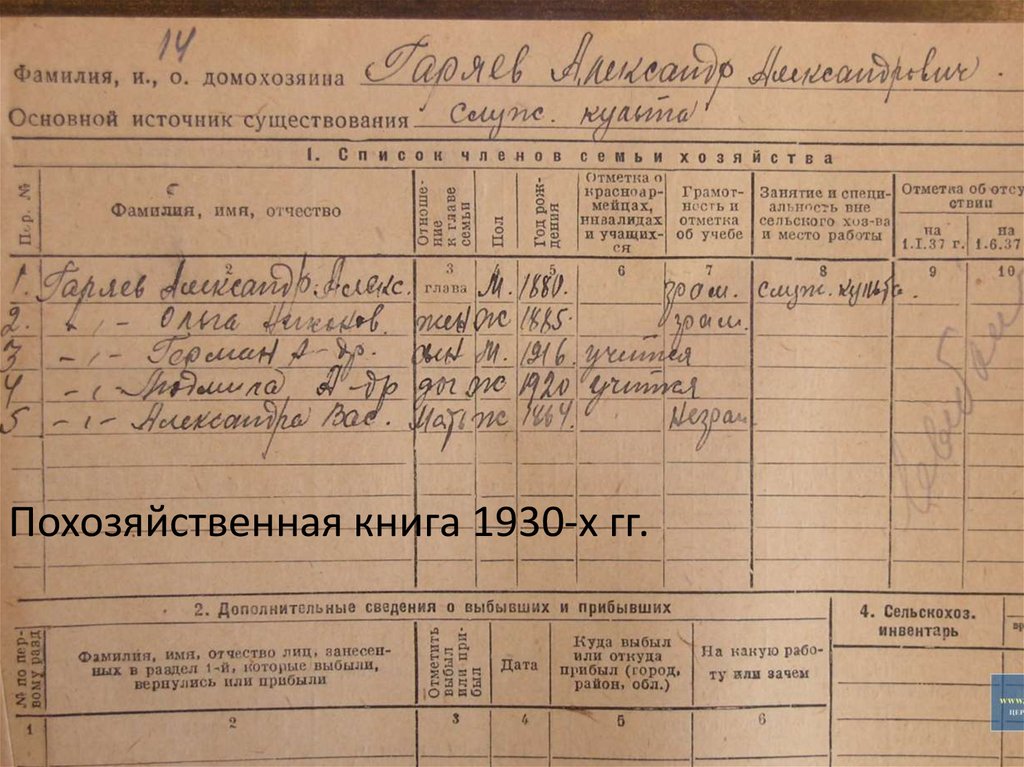 14
Фамилия, и., о. домохозяина Гаряев Александр Александрович.
Основной источник существования служ. культа
1. Список членов семьи хозяйства
Пор. №
Фамилия, имя, отчество
Отноше-
ние
к главе
семьи
Пол
Год рож-
дения
Отметка о
красноар-
мейцах,
инвалидах
и учащих-
ся
Грамот-
ность и
отметка
об учебе
Занятие и специ-
альность вне
сельского хоз-ва
и место работы
Отметка об отсу
ствии
на
1.I.37 г.
на
1.6.37
2 3 4 5 6 7 8 9 10
1. Гаряев Александр. Алекс. глава М. 1880. грам. служ. культа.
2. -"- Ольга жен ж 1885. грам.
3 -"- Герман А-др. сын М. 1916. учится
4 -"- Людмила А-др доч ж 1920 учится
5 -"- Александра Вас. Мать ж 1864. Неграм.
Похозяйственная книга 1930-х гг.
2. Дополнительные сведения о выбывших и прибывших
№ по пер-
вому разд
Фамилия, имя, отчество лиц, занесен-
ных в раздел 1-й, которые выбыли,
вернулись или прибыли
Отметить
выбыл
или при-
был
Дата
Куда выбыл
или откуда
прибыл (город,
район, обл.)
На какую рабо-
ту или зачем
1 2 3 4 5 6
4. Сельскохоз.
инвентарь
www.
ЦЕР